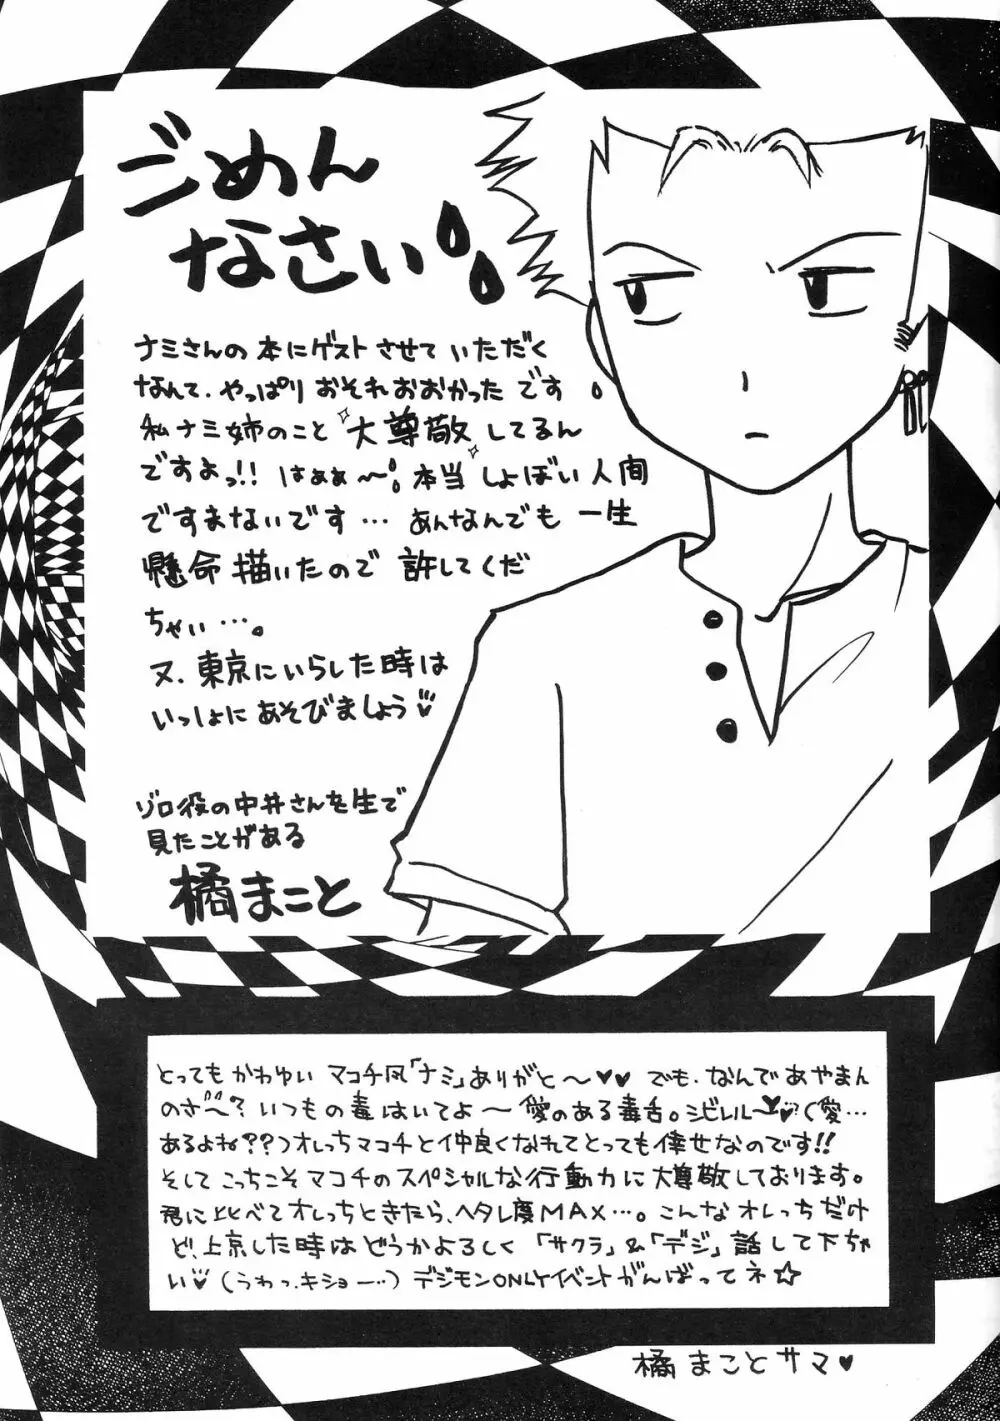 ごめん
なさい
ナミさんの本にゲストさせていただく
なんて、やっぱりおそれおおかったです
私ナミ姉のこと大尊敬してるん
ですよっ!! はぁぁ〜 本当しょぼい人間
ですまないです… あんなんでも一生
懸命描いたので許してくだ
ちゃい…。
又、東京にいらした時は
いっしょにあそびましょう♡
ゾロ役の中井さんを生で
見たことがある
橘まこと
とってもかわゆいマコチ風「ナミ」ありがと〜♥♥ でも、なんであやまん
のさ〜? いつもの毒はいてよ〜 愛のある毒舌。シビレル〜♥?(愛…
あるよね??)オレっちマコチと仲良くなれてとっても倖せなのです!!
そしてこっちこそマコチのスペシャルな行動力に大尊敬しております。
君に比べてオレっちときたら、ヘタレ度MAX…。こんなオレっちだけ
ど、上京した時はどうかよろしく「サクラ」&「デジ」話して下ちゃ
い♥(うわっ、キショー…)デジモンONLYイベントがんばってネ☆
橘まことサマ♥